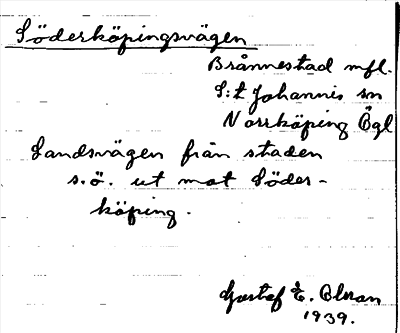 Söderköpingsvägen
Brånnestad mfl.
S:t Johannis sn
Norrköping Ögl
Landsvägen från staden
s.ö. ut mot Söder-
köping.
Gustaf E.
1939.